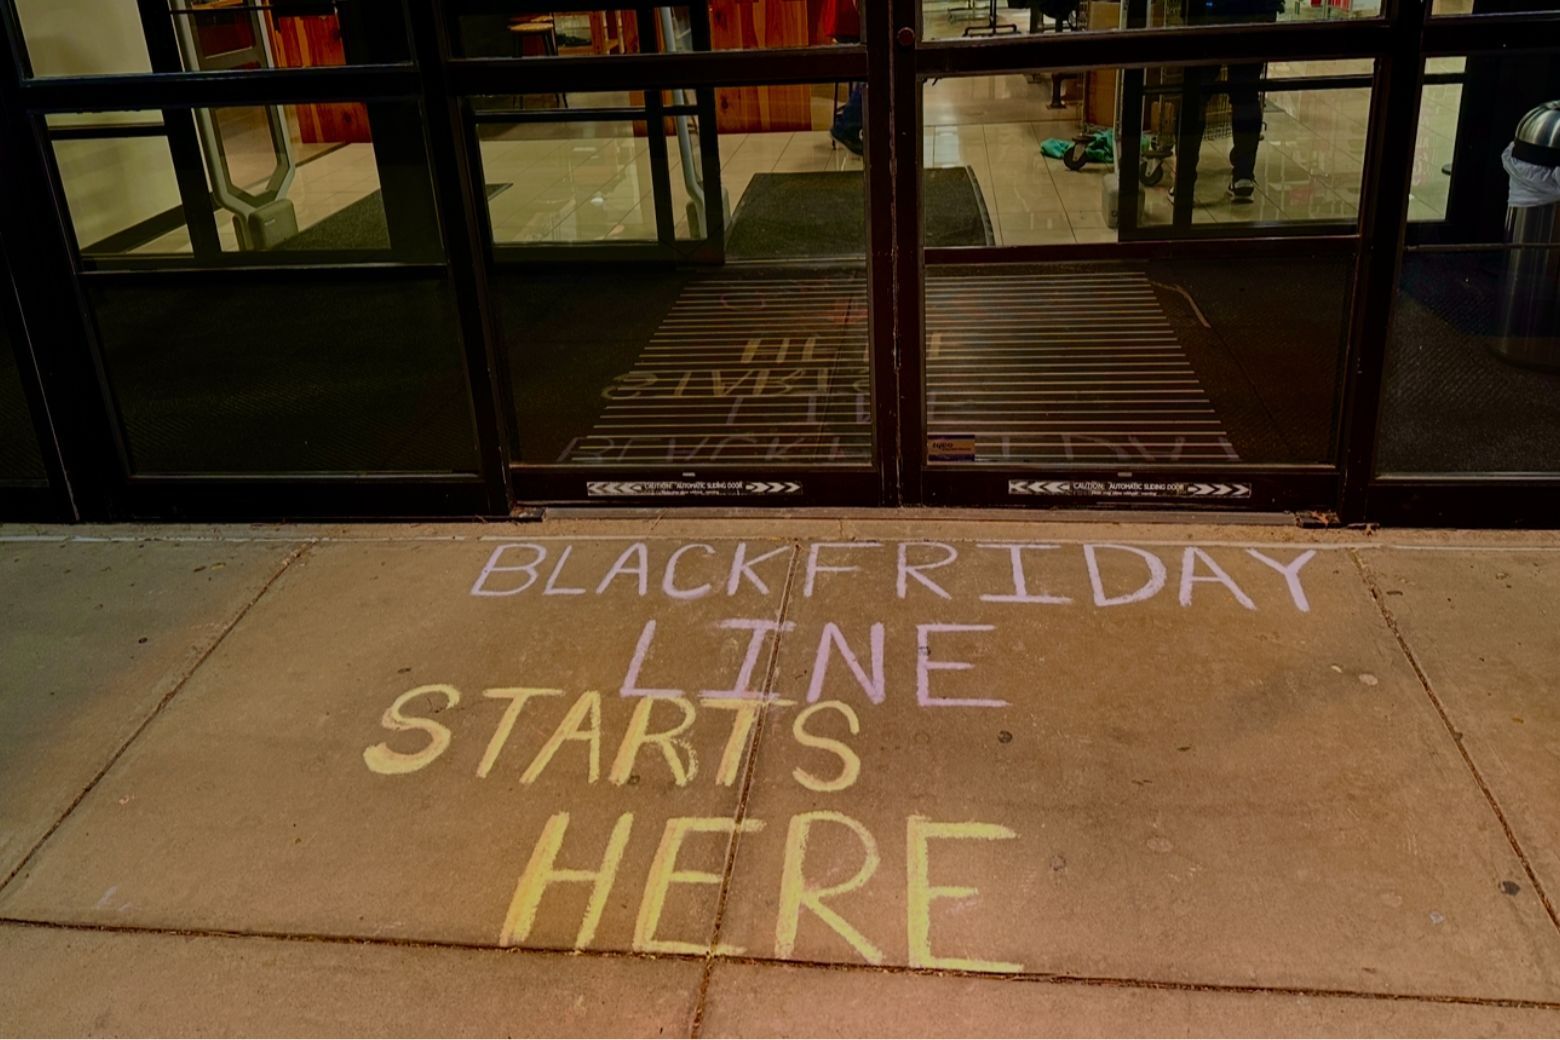 CAUTION: AUTOMATIC SLIDING DOOR
CAUTION: AUTOMATIC SLIDING DOOR
BLACK FRIDAY
LINE
STARTS
HERE